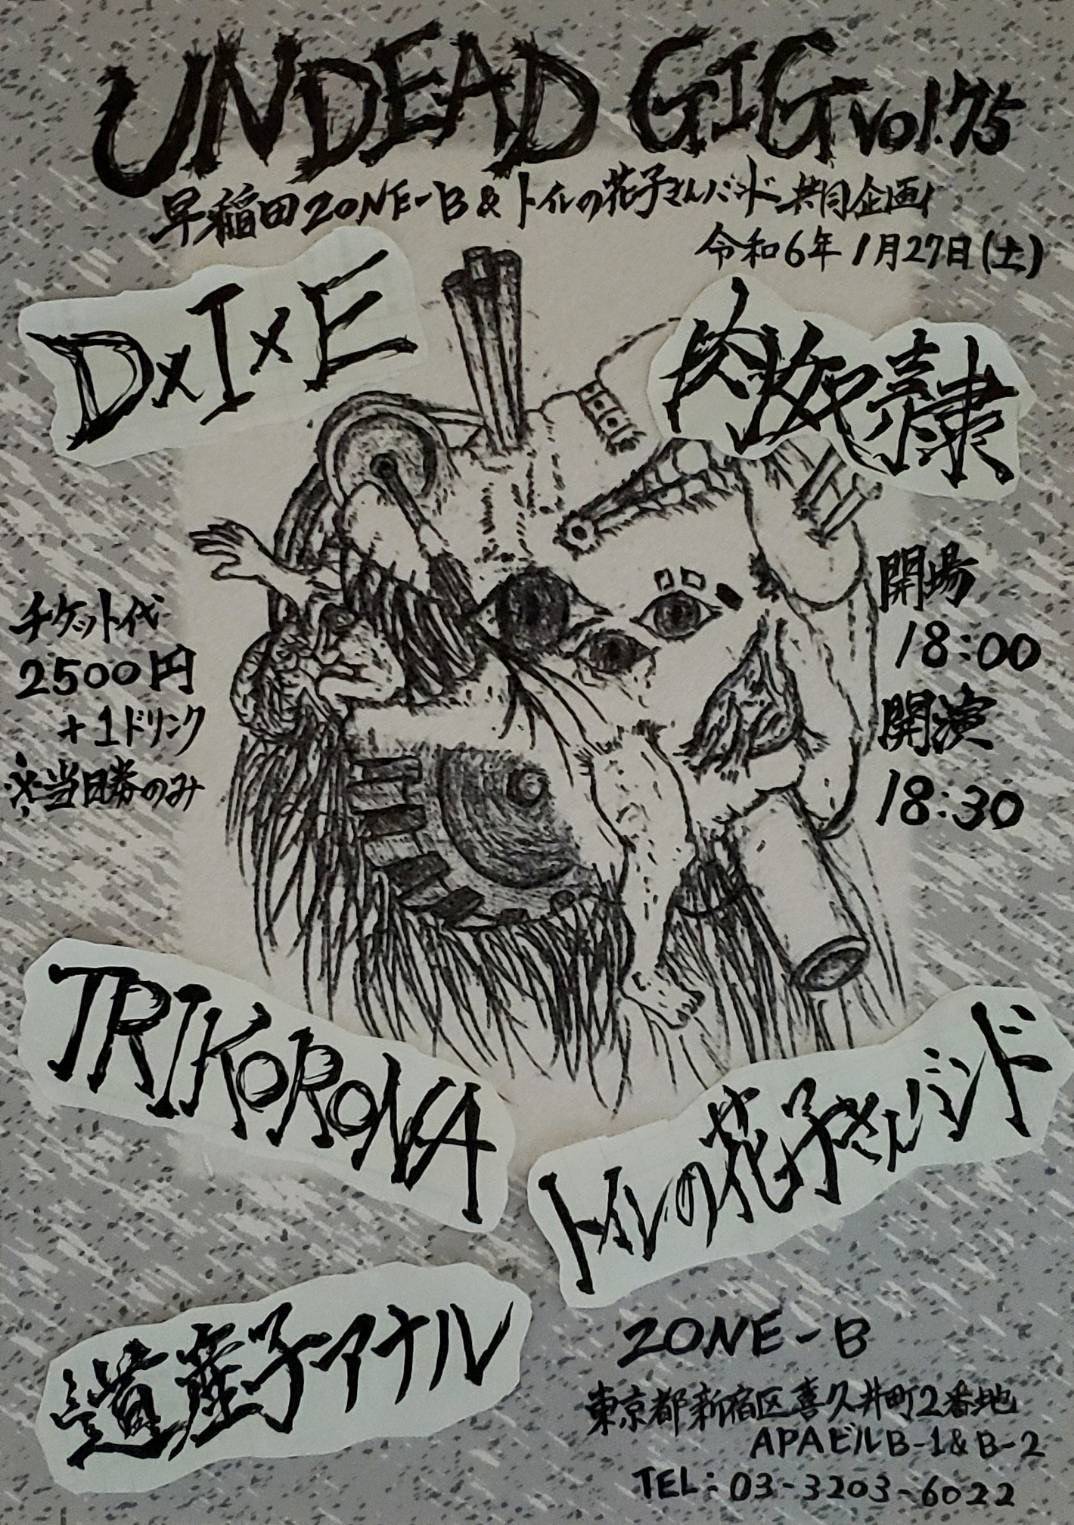 UNDEAD GIG vol.75
早稲田ZONE-B & トイレの花子さんバンド 共同企画
令和6年 1月27日(土)
D×I×E
肉奴隷
開場
18:00
開演
18:30
チケット代
2500円
+1ドリンク
※当日券のみ
TRIKORONA
トイレの花子さんバンド
遺産子アナル
ZONE-B
東京都新宿区喜久井町2番地
APAビルB-1&B-2
TEL: 03-3203-6022